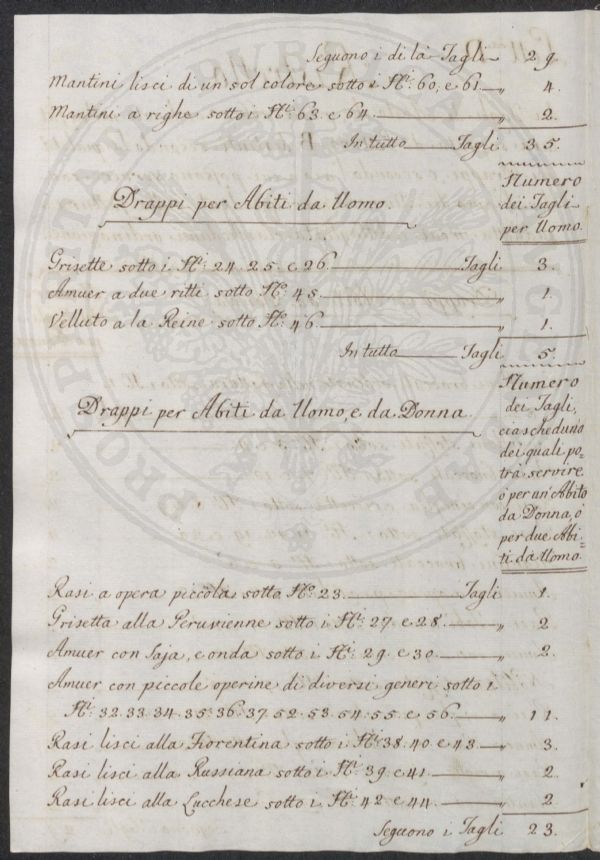 Seguono i di là Tagli 29.
Mantini lisci di un sol colore sotto i N.i 60, e 61 — „ 4.
Mantini a righe sotto i N.i 63 e 64 — „ 2.
In tutto — Tagli 35.
Numero
dei Tagli
per Uomo.
Drappi per Abiti da Uomo.
Grisette sotto i N.i 24. 25. e 26. — Tagli 3.
Amuer a due ritti sotto N.o 45. — „ 1.
Velluto a la Reine sotto N.o 46. — „ 1.
In tutto — Tagli 5.
Numero
dei Tagli,
ciascheduno
dei quali po=
trà servire
ò per un'Abito
da Donna, ò
per due Abi=
ti da Uomo.
Drappi per Abiti da Uomo, e da Donna.
Rasi a opera piccola sotto N.o 23. — Tagli 1.
Grisetta alla Peruvienne sotto i N.i 27. e 28. — „ 2
Amuer con Saja, e onda sotto i N.i 29. e 30. — „ 2.
Amuer con piccole operine di diversi generi sotto i
N.i 32. 33. 34. 35. 36. 37. 52. 53. 54. 55. e 56. — „ 11.
Rasi lisci alla Fiorentina sotto i N.i 38. 40. e 43. — „ 3.
Rasi lisci alla Russiana sotto i N.i 39. e 41. — „ 2.
Rasi lisci alla Lucchese sotto i N.i 42 e 44. — „ 2.
Seguono i Tagli 23.